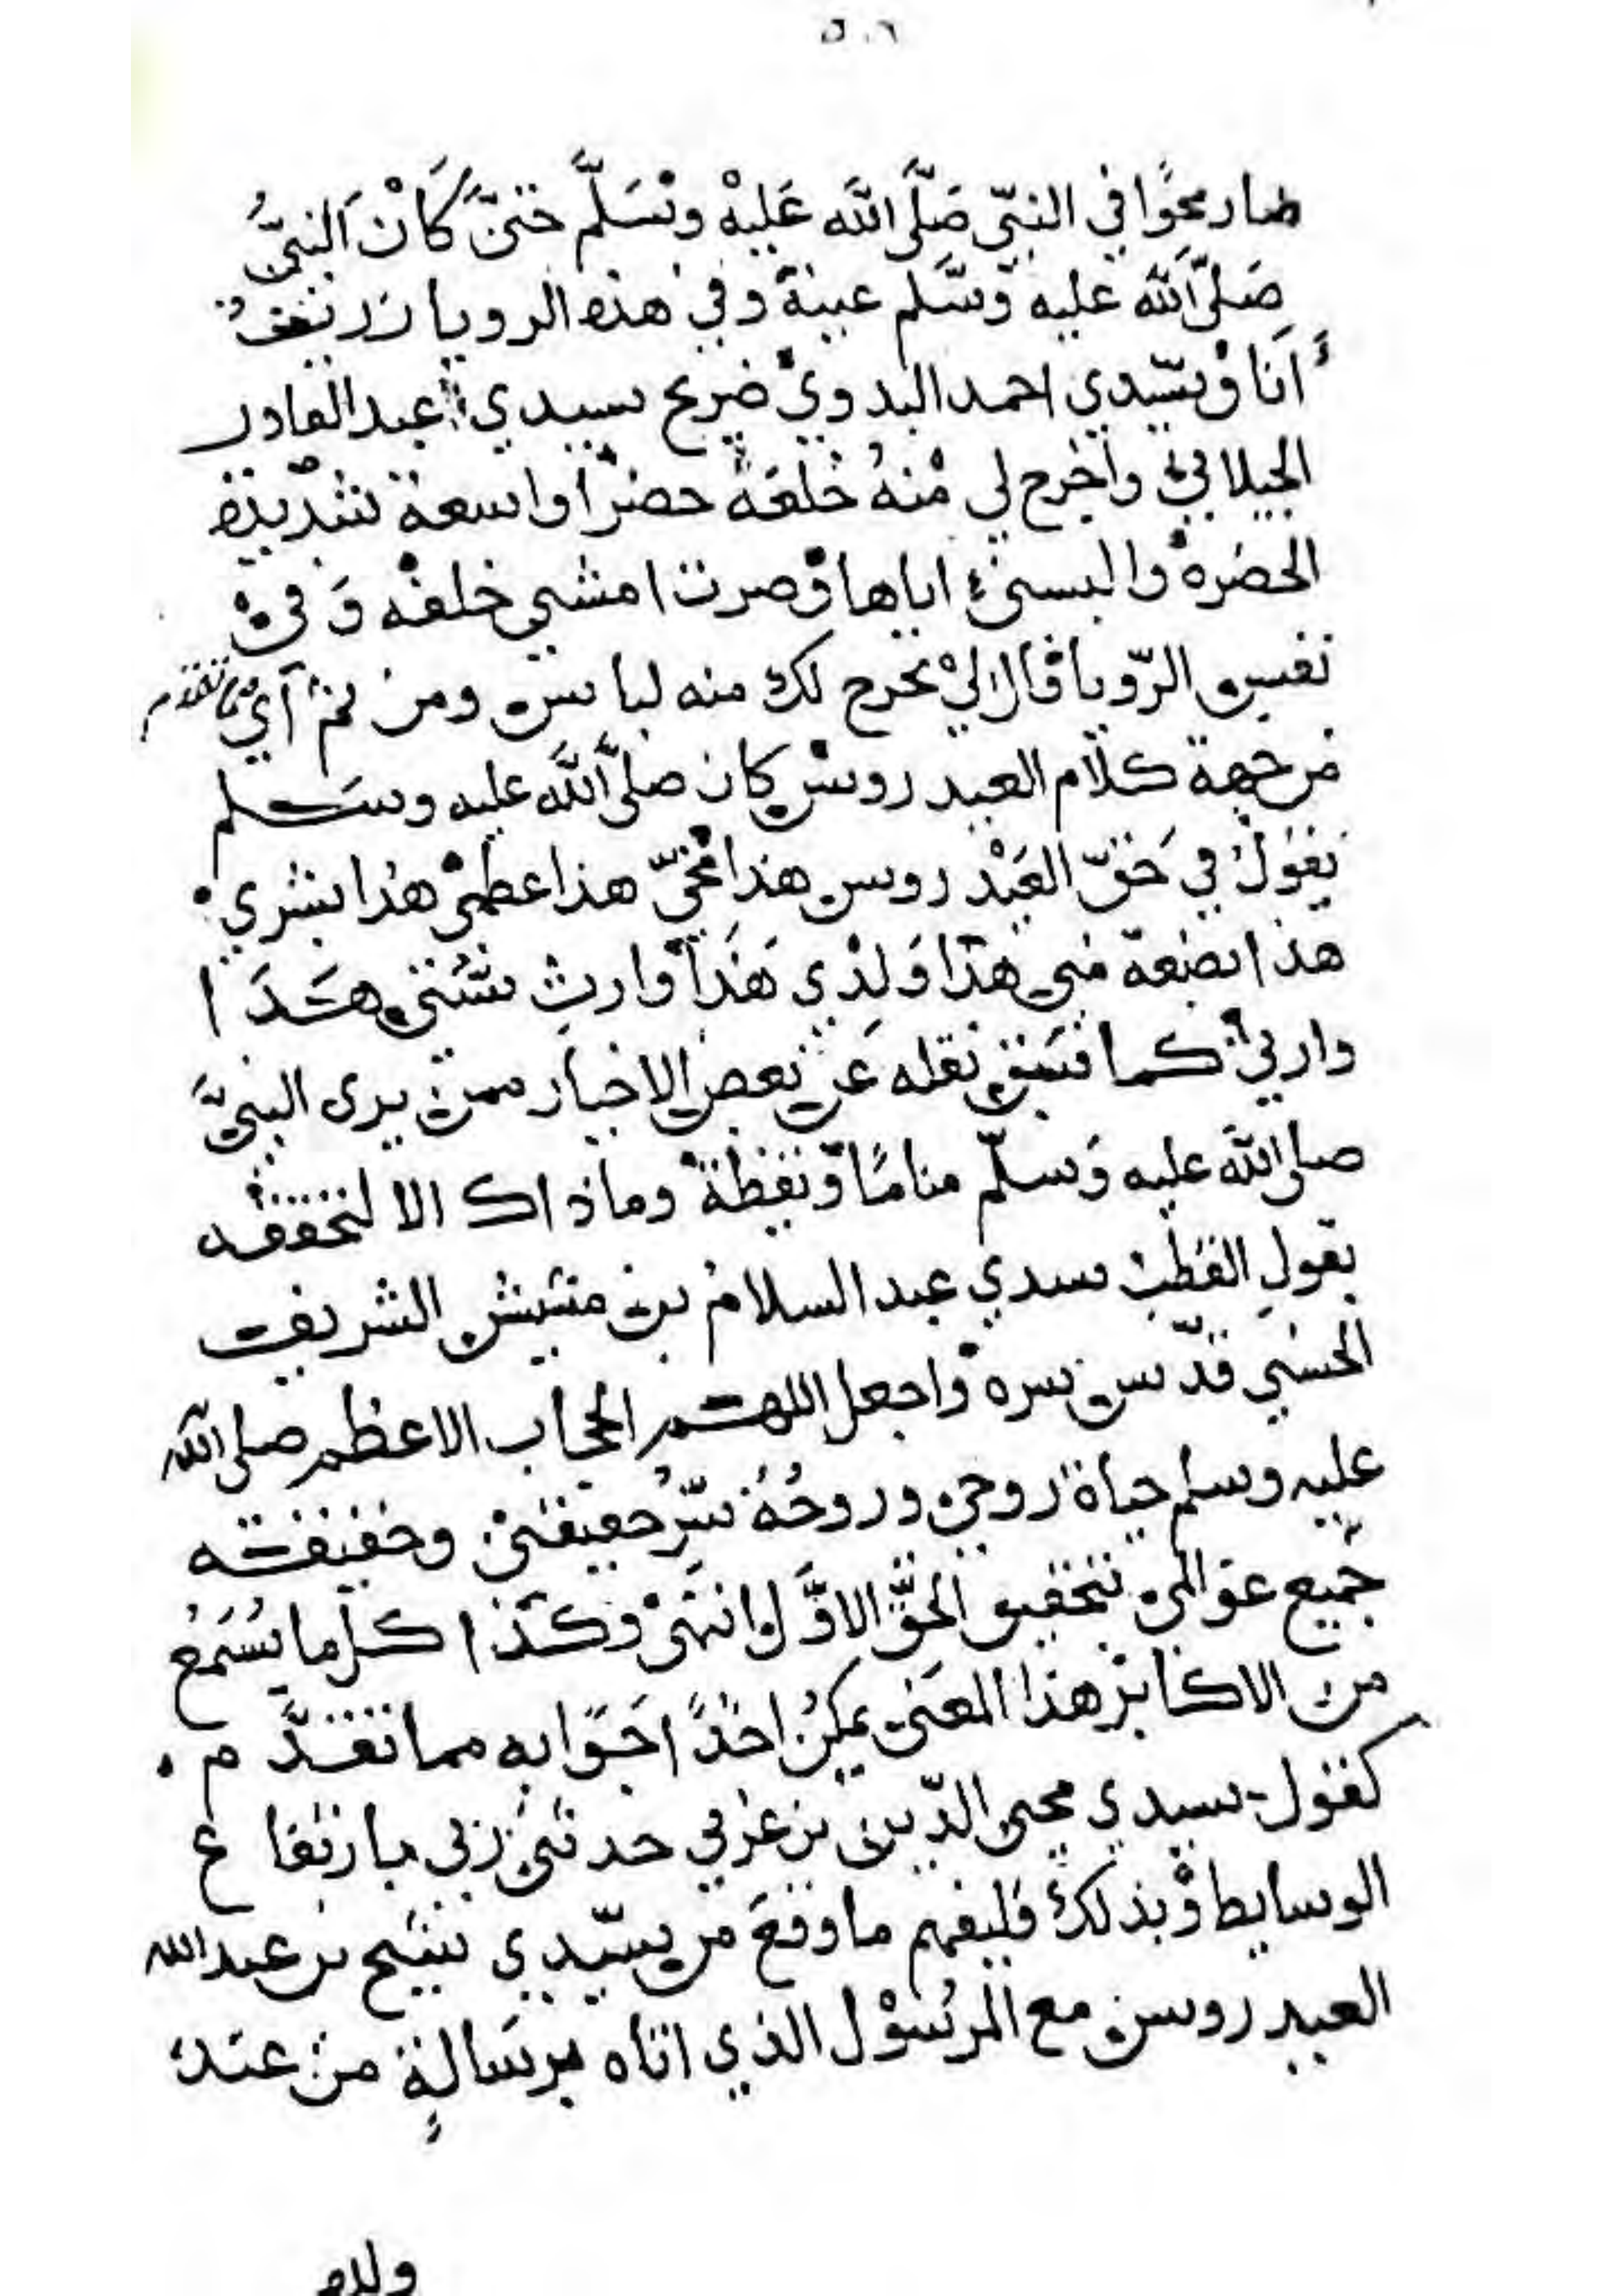 ٥٠٦
صار محوًا في النبيّ صَلَّى اللَّه عَلَيْهْ وَسَلَّمْ حَتىَّ كَانْ اَلنبيُّ
صَلىَّ اللَّه عليه وَسَّلم عينهْ وفي هذه الرويا زرتُ
اَنَا وْسَيّدي احمد البدويْ ضريح سيدي عبد القادر
الجيلاني وأخرج لي مْنهُ خُلعَة خضرا واسعة شديدة
الخضره والبسني اياها وْصرت امشي خلفه وَفيْ
تفسير الرّويا قال ليْ يخرج لك منه لباس ومن ثم آي مما تقدم
من جهة كلام العيدروس كان صلىَّ اللَّه عليه وسَلم
يقولُ في حَقّ العَيْدروس هذا مُخيّ هذا عظميْ هذا بشري
هذا بضعة مني هذا وَلدْي هَذَا وارث سُنتي هَذَا
وارثي كما سَبَق نقله عَن بعض الاخيار ممن يرى النبيَّ
صلى اللَّه عليه وَسلّم منامًا وَّيقظةً وماذاك الا لتحققه
بقولِ القطب سيدي عبد السلامْ بن مشيش الشريف
الحسني قدّس سره وْاجعل اللهم الحجاب الاعظم صلى اللّه
عليه وسلم حياة روحي وروحُهُ سِّرُ حقيقتي وحقيقته
جَميع عوَالمي بتحقيق اَلحَقِّ الاوَّل انتهَىْ وكَذا كلّما يُسْمَعُ
من الاكابرْ هذا المعَنى يمكنُ اخذًا جَوَّابه مما تقدَّم .
كقول سيدي محيى الدّين بن عربي حدثني ربي بارتفاع
الوسايط وْبذلكْ فليفهم ما وقعَ من سَيّدي شيخ بن عبد الله
العيدروس مع المرسُوْل الذي اتاه برسَالةٍ من عند
ولده